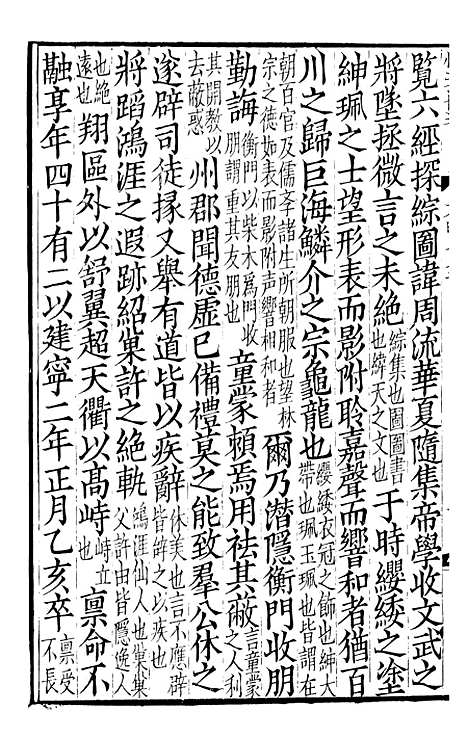 覽六經探綜圖諱周流華夏隨集帝學收文武之
將墜拯微言之未絶綜集也圖圖書也緯天之文也于時纓緌之塗
紳珮之士望形表而影附聆嘉聲而響和者猶百
川之歸巨海鱗介之宗龜龍也纓緌衣冠之飾也紳大帶也珮玉珮也皆謂在
朝百官及儒斈諸生所朝服也望林宗之徳如表而影附声響相和者爾乃潛隱衡門收朋
勤誨衡門以柴木爲門收朋謂重其友朋也童蒙頼焉用祛其蔽言童蒙之人利
其開教以去蔽惑州郡聞德虛已備禮莫之能致羣公休之
遂辟司徒掾又舉有道皆以疾辭休美也言不應辟皆辤之以疾也
將蹈鴻涯之遐跡紹巢許之絶軌鴻涯仙人也巢巢父許由皆隱逸人
也絶遠也翔區外以舒翼超天衢以高峙峙立也禀命不
融享年四十有二以建寧二年正月乙亥卒禀受不長